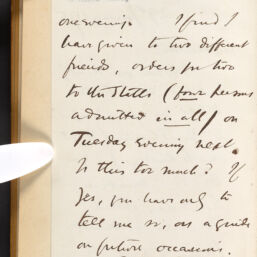 one evening. I find I
have given to two different
friends, orders for two
to the Stalls (four persons
admitted in all) on
Tuesday evening next.
Is this too much? If
yes, you have only to
tell me so, as a guide
on future occasions.